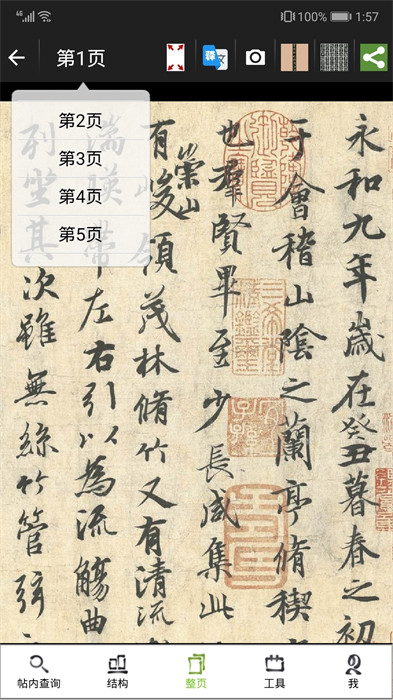 4G
100%
1:57
第1页
第2页
第3页
第4页
第5页
永和九年歲在癸丑暮春之初
于會稽山陰之蘭亭脩稧
也羣賢畢至少長咸集此
有崇山峻領茂林脩竹又有清流
湍暎帶左右引以為流觴曲
列坐其次雖無絲竹管弦
帖内查询
结构
整页
工具
我